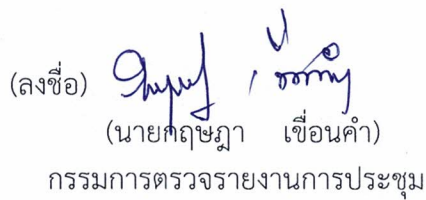 (ลงชื่อ)
(นายกฤษฎา เขื่อนคำ)
กรรมการตรวจรายงานการประชุม